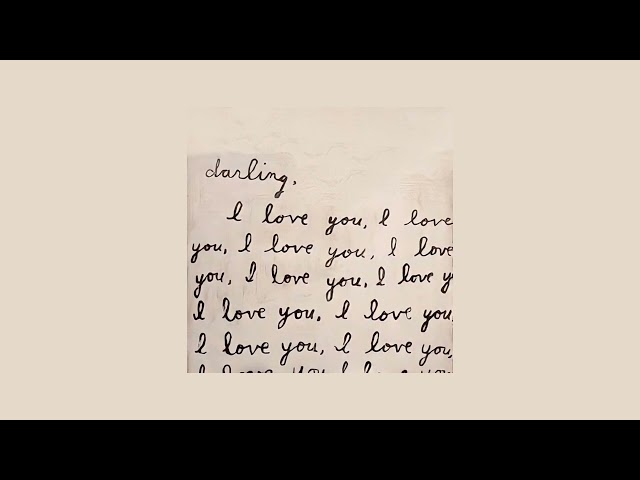 darling,
I love you, I love
you, I love you, I love
you, I love you, I love y
I love you, I love you,
I love you, I love you,
I love you I love you